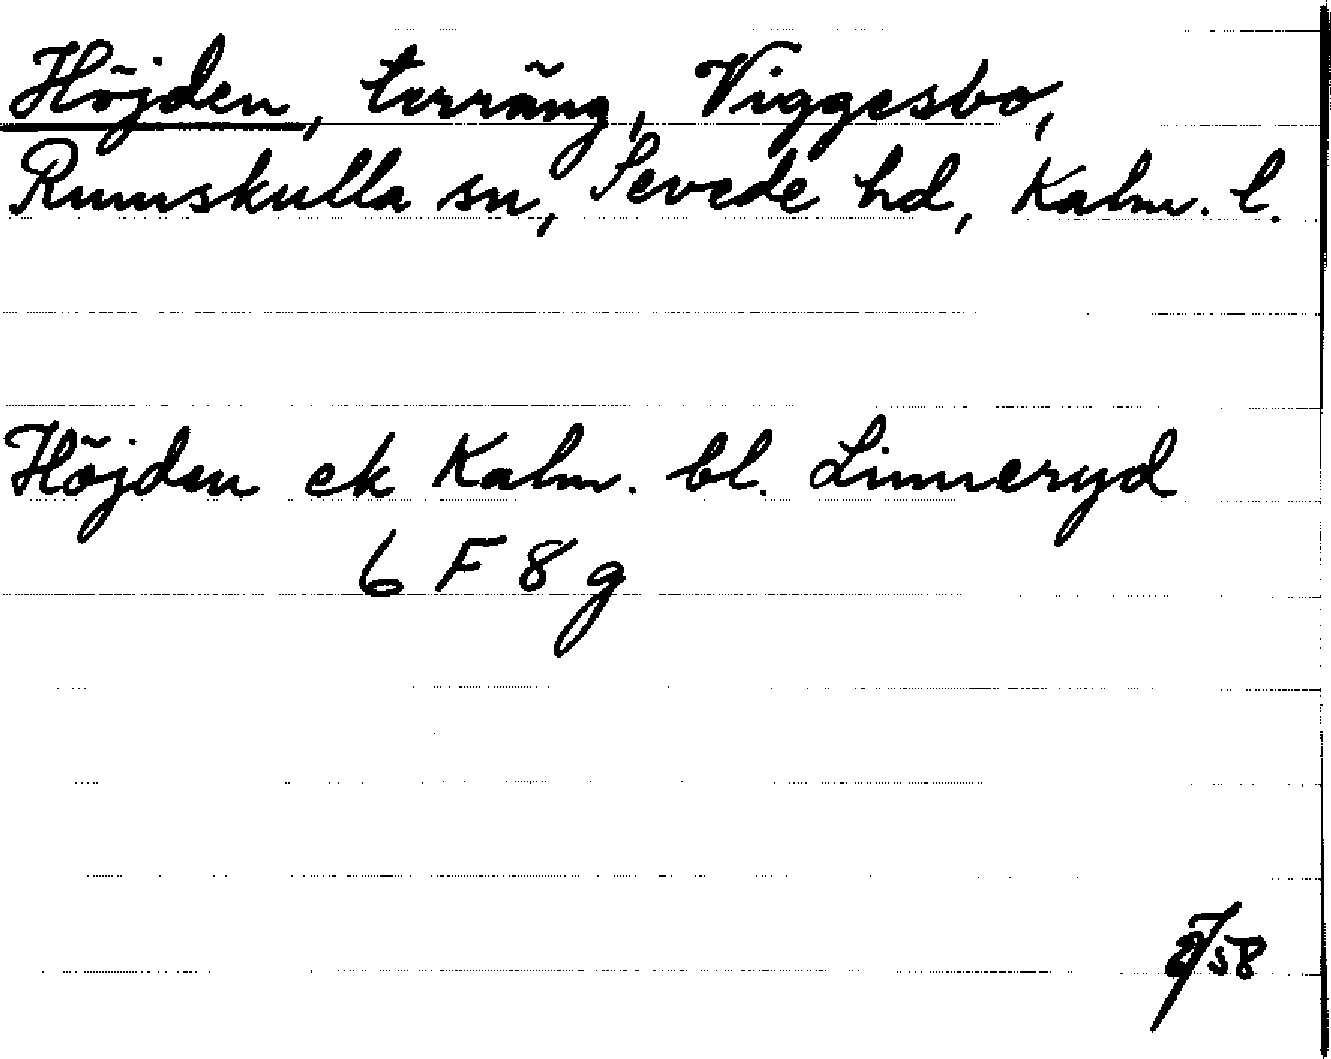 Höjden, terräng, Viggesbo,
Rumskulla sn, Sevede hd, Kalm. l.
Höjden ek Kalm. bl. Linneryd
6 F 8 g
58